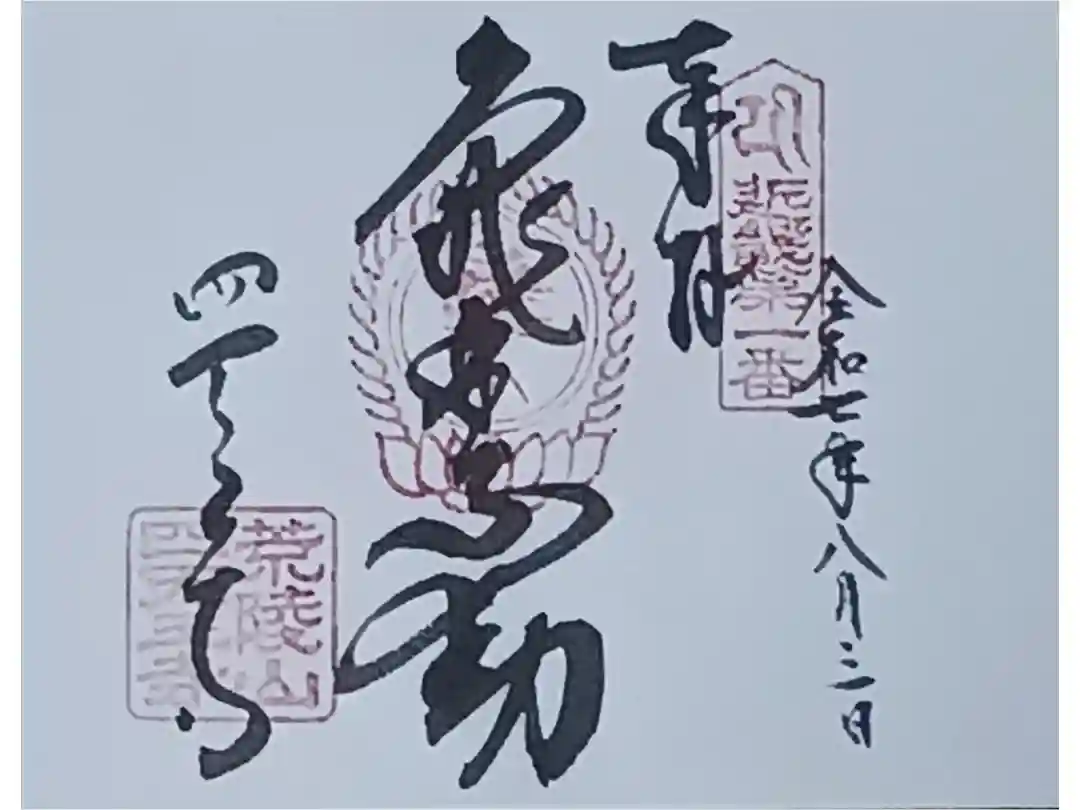 令和七年八月三日
奉拝
近畿第一番
亀井不動
四天王寺
荒陵山
四天王寺